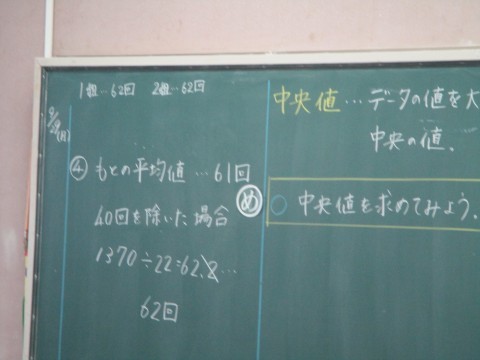 1組…62回 2組…62回
④ もとの平均値…61回
40回を除いた場合
1370÷22=62.2…
62回
中央値…データの値を大
中央の値。
め ○ 中央値を求めてみよう。